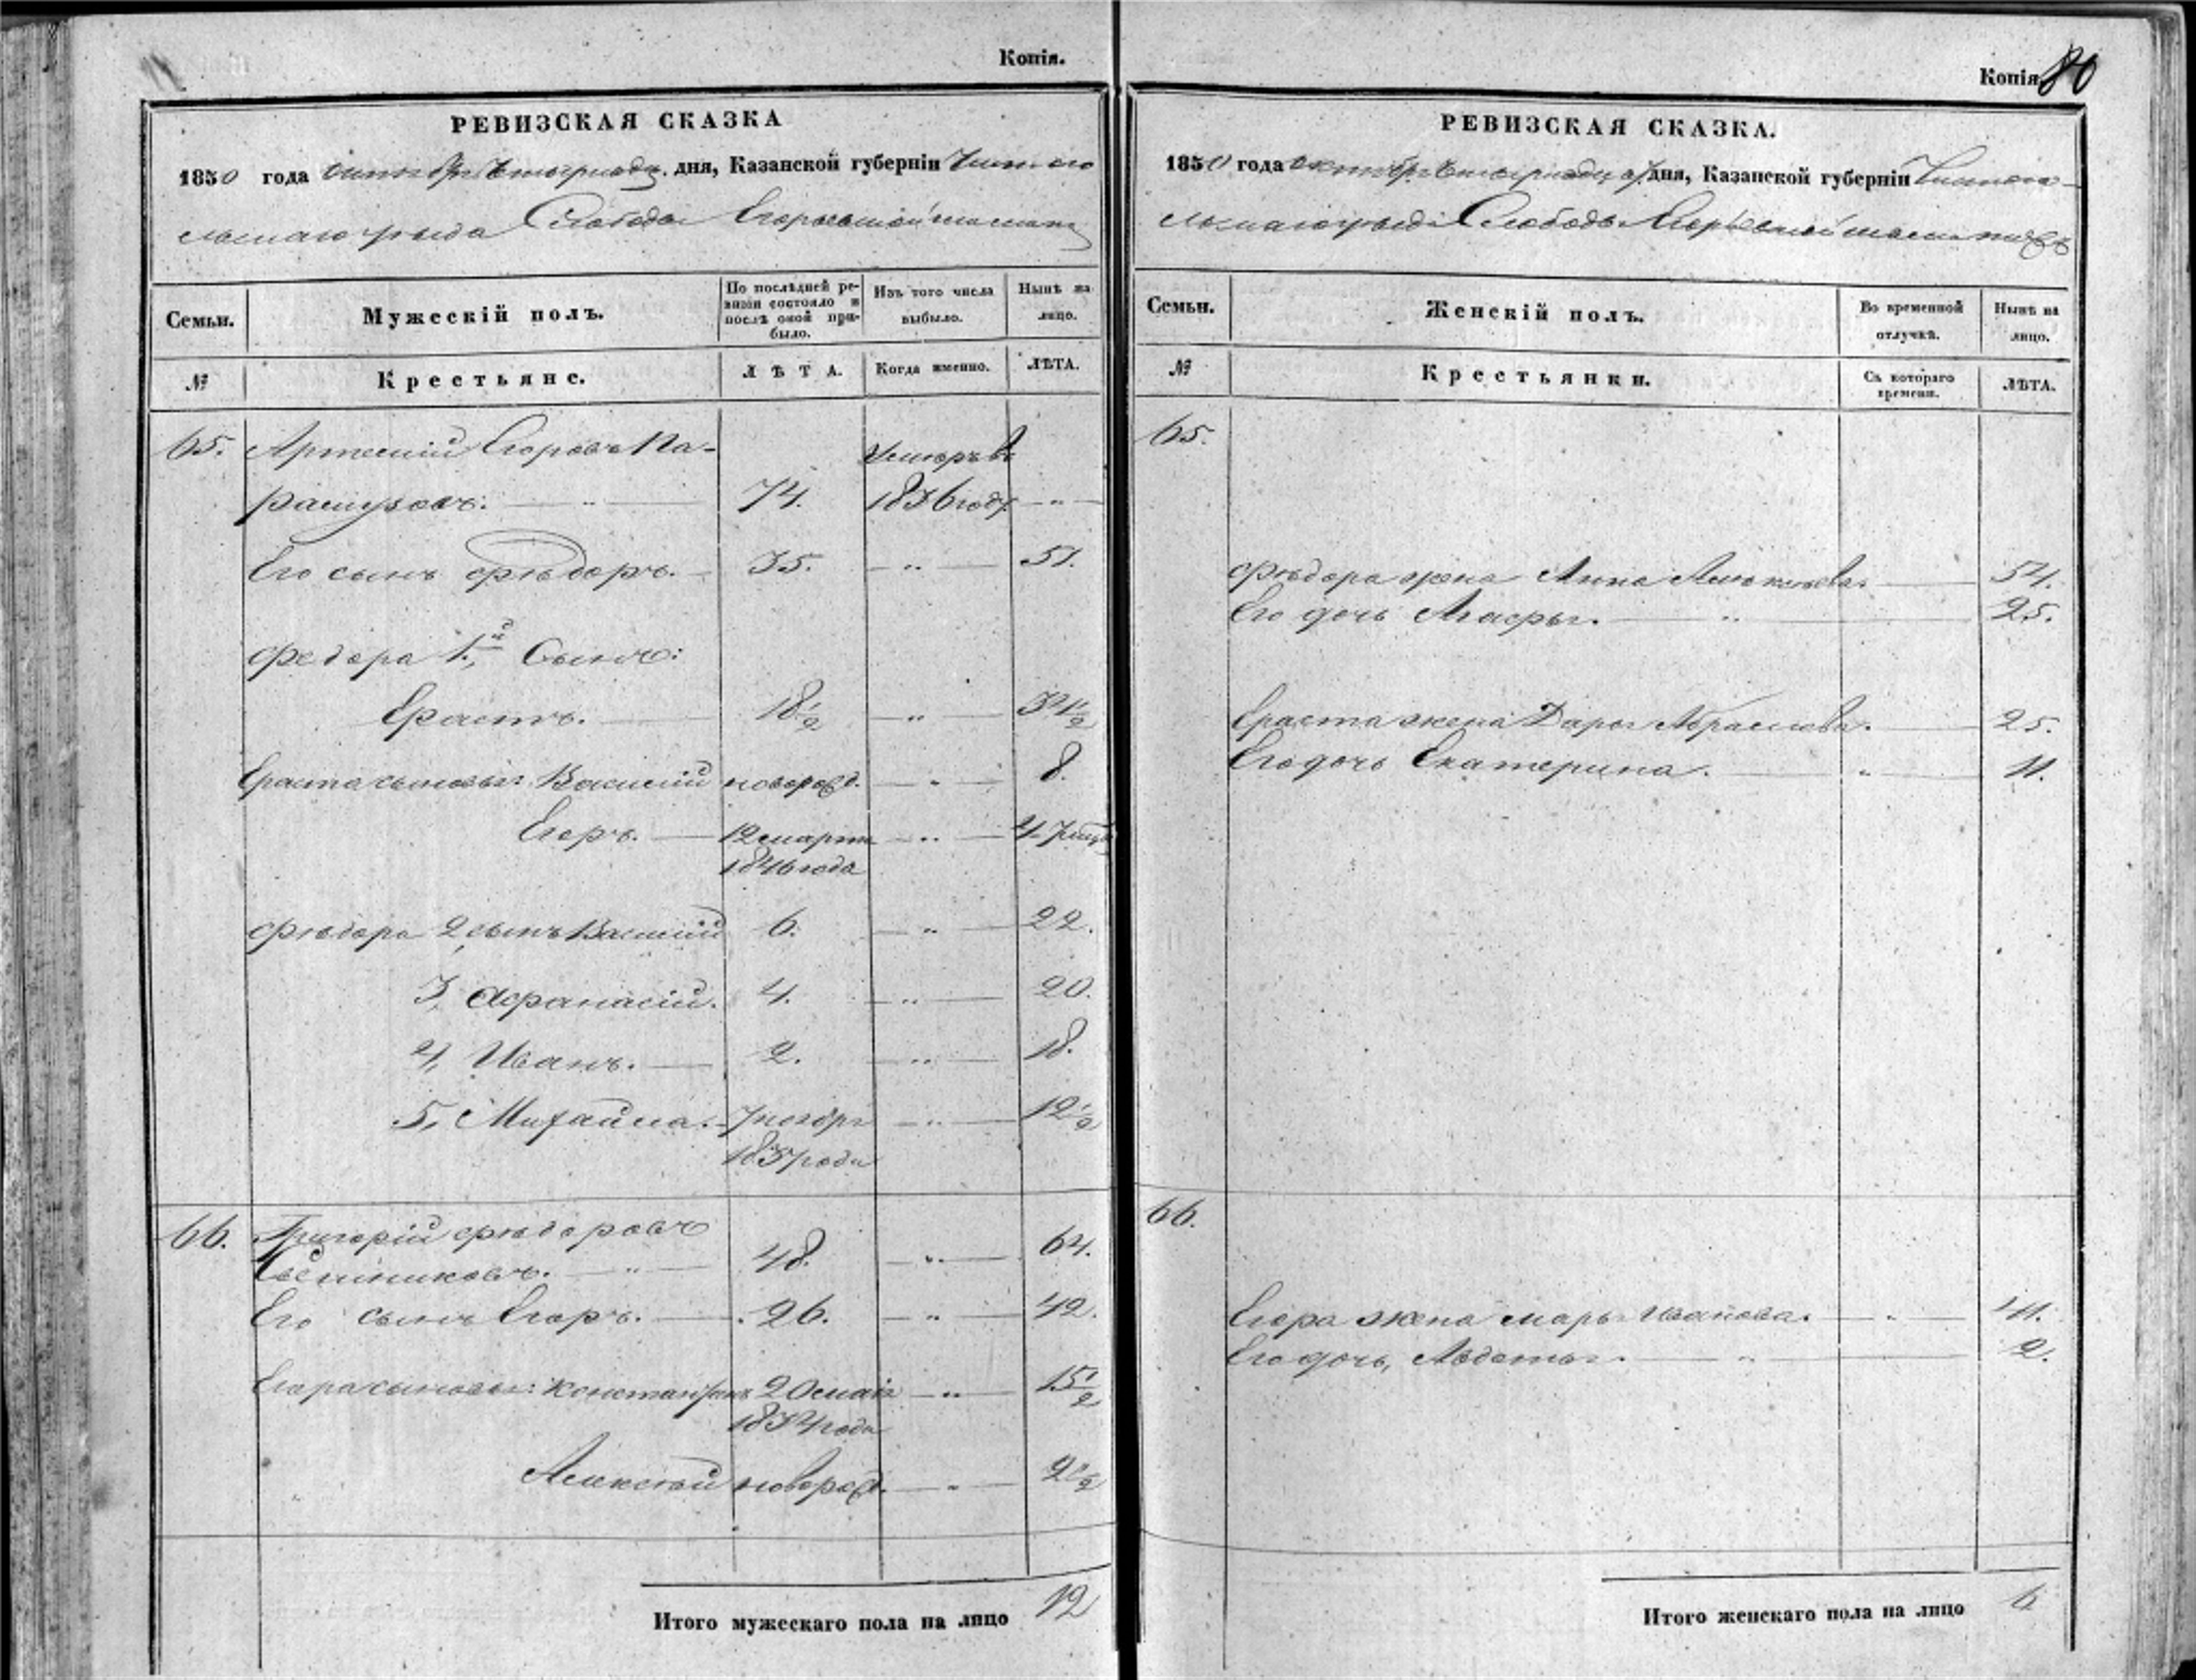 Копія.
РЕВИЗСКАЯ СКАЗКА
1850 года октября дня, Казанской губерніи
уезда Слобода
Семьи.
Мужескій полъ.
По послѣдней ре-
визіи состояло и
послѣ оной при-
было.
Изъ того числа
выбыло.
Нынѣ на
лицо.
№
Крестьяне.
ЛѢТА.
Когда именно.
ЛѢТА.
65. Артемій Егоровъ Па-
Умеръ въ
рашузовъ. 74. 1836 году. "
Его сынъ Фёдоръ. 35. " 51.
Федора 1й, Сынъ:
Ерастъ. 18 1/2 " 34 1/2
Ераста сыновья: Василий новорожд. " 8.
Егоръ. 12 марта " 4 7
1846 года
Фёдора 2 сынъ Василий 6. " 22.
3, Афанасій. 4. " 20.
4, Иванъ. 2. " 18.
5, Михайла. 7 ноября " 12 1/2
1837 года
66. Григорій Фёдоровъ
48. " 64.
Его сынъ Егоръ. 26. " 42.
Егора сыновья: Константинъ 20 мая " 15 1/2
1834 года
Алексѣй новорожд. " 2 1/2
Итого мужескаго пола на лицо 12
Копія 80
РЕВИЗСКАЯ СКАЗКА.
1850 года октября дня, Казанской губерніи
уезда Слобода
Семьи.
Женскій полъ.
Во временной
отлучкѣ.
Нынѣ на
лицо.
№
Крестьянки.
Съ котораго
времени.
ЛѢТА.
65.
Фёдора жена Анна 54.
Его дочь Агафья. " 25.
Ераста жена Дарья Абрамова. 25.
Его дочь Екатерина. " 11.
66.
Егора жена Марья Иванова. " 41.
Его дочь, Авдотья. " 2.
Итого женскаго пола на лицо 6